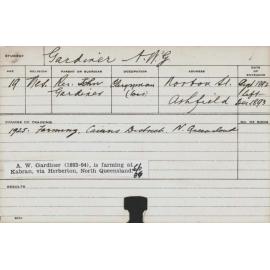 STUDENT Gardiner A.W.G
AGE RELIGION PARENT OR GUARDIAN OCCUPATION ADDRESS DATE OF ENTRANCE
19 Wes. Rev. John Clergyman Norton St. Sept 1892
Gardiner (Wes) Ashfield left
Dec 1893
COURSE OF TRAINING
1925. Farming, Cairns District. N. Queensland
A. W. Gardiner (1893-94), is farming at
Kaban, via Herberton, North Queensland.
RESULTS